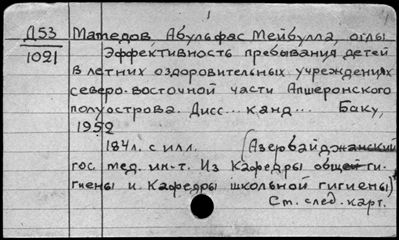 Д53 Мамедов, Абульфас Мейбулла, оглы
1021 Эффективность пребывания детей
в летних оздоровительных учреждениях
северо-восточной части Апшеронского
полуострова. Дисс... канд... Баку,
1952
184л. с илл. (Азербайджанский
гос. мед. ин-т. Из Кафедры общей ги-
гиены и Кафедры школьной гигиены)
См. след. карт.